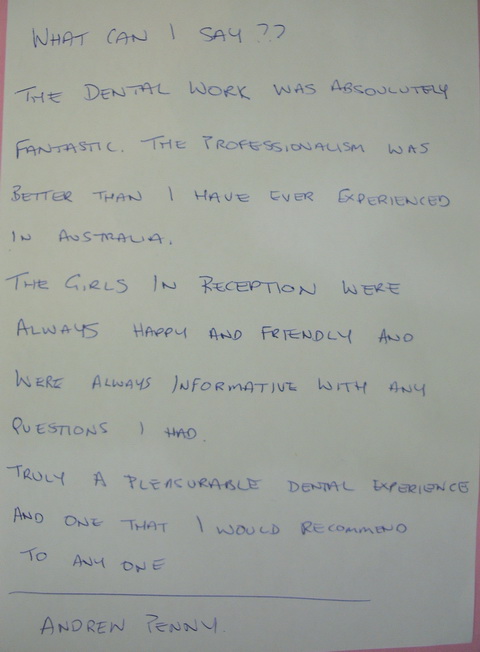 WHAT CAN I SAY??
THE DENTAL WORK WAS ABSOULUTELY
FANTASTIC. THE PROFESSIONALISM WAS
BETTER THAN I HAVE EVER EXPERIENCED
IN AUSTRALIA.
THE GIRLS IN RECEPTION WERE
ALWAYS HAPPY AND FRIENDLY AND
WERE ALWAYS INFORMATIVE WITH ANY
QUESTIONS I HAD.
TRULY A PLEASURABLE DENTAL EXPERIENCE
AND ONE THAT I WOULD RECOMMEND
TO ANY ONE
ANDREW PENNY.